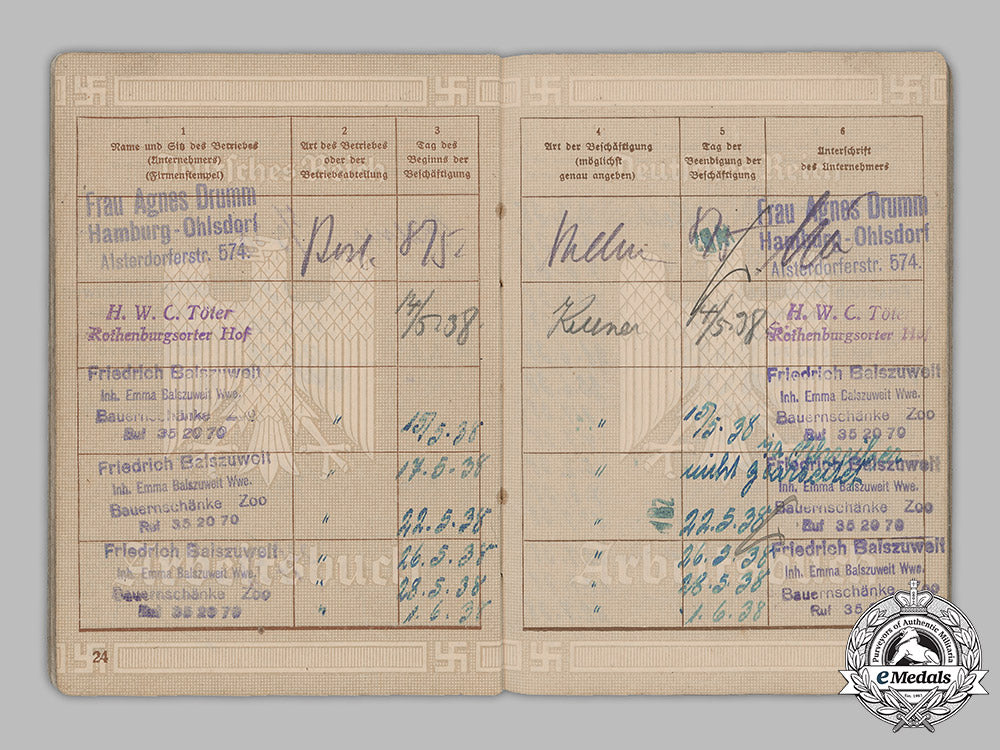 1
Name und Sitz des Betriebes
(Unternehmers)
(Firmenstempel)
2
Art des Betriebes
oder der
Betriebsabteilung
3
Tag des
Beginns der
Beschäftigung
Frau Agnes Drumm
Hamburg-Ohlsdorf
Alsterdorferstr. 574.
8/5.
H. W. C. Töter
Rothenburgsorter Hof
14/5.38.
Friedrich Balszuweit
Inh. Emma Balszuweit Wwe.
Bauernschänke Zoo
Ruf 35 20 70
"
15/5.38
Friedrich Balszuweit
Inh. Emma Balszuweit Wwe.
Bauernschänke Zoo
Ruf 35 20 70
17.5.38
"
22.5.38
Friedrich Balszuweit
Inh. Emma Balszuweit Wwe.
Bauernschänke Zoo
Ruf 35 20 70
"
26.5.38
"
28.5.38
"
1.6.38
Arbeitsbuch
24
4
Art der Beschäftigung
(möglichst
genau angeben)
5
Tag der
Beendigung der
Beschäftigung
6
Unterschrift
des Unternehmers
Frau Agnes Drumm
Hamburg-Ohlsdorf
Alsterdorferstr. 574.
Kellner
14/5.38
H. W. C. Töter
Rothenburgsorter Hof
"
15/5.38
Friedrich Balszuweit
Inh. Emma Balszuweit Wwe.
Bauernschänke Zoo
Ruf 35 20 70
"
nicht gearbeitet
"
22.5.38
Friedrich Balszuweit
Inh. Emma Balszuweit Wwe.
Bauernschänke Zoo
Ruf 35 20 70
"
26.5.38
"
28.5.38
"
1.6.38
Friedrich Balszuweit
Inh. Emma Balszuweit Wwe.
Bauernschänke Zoo
Ruf 35
Purveyors of Authentic Militaria
eMedals